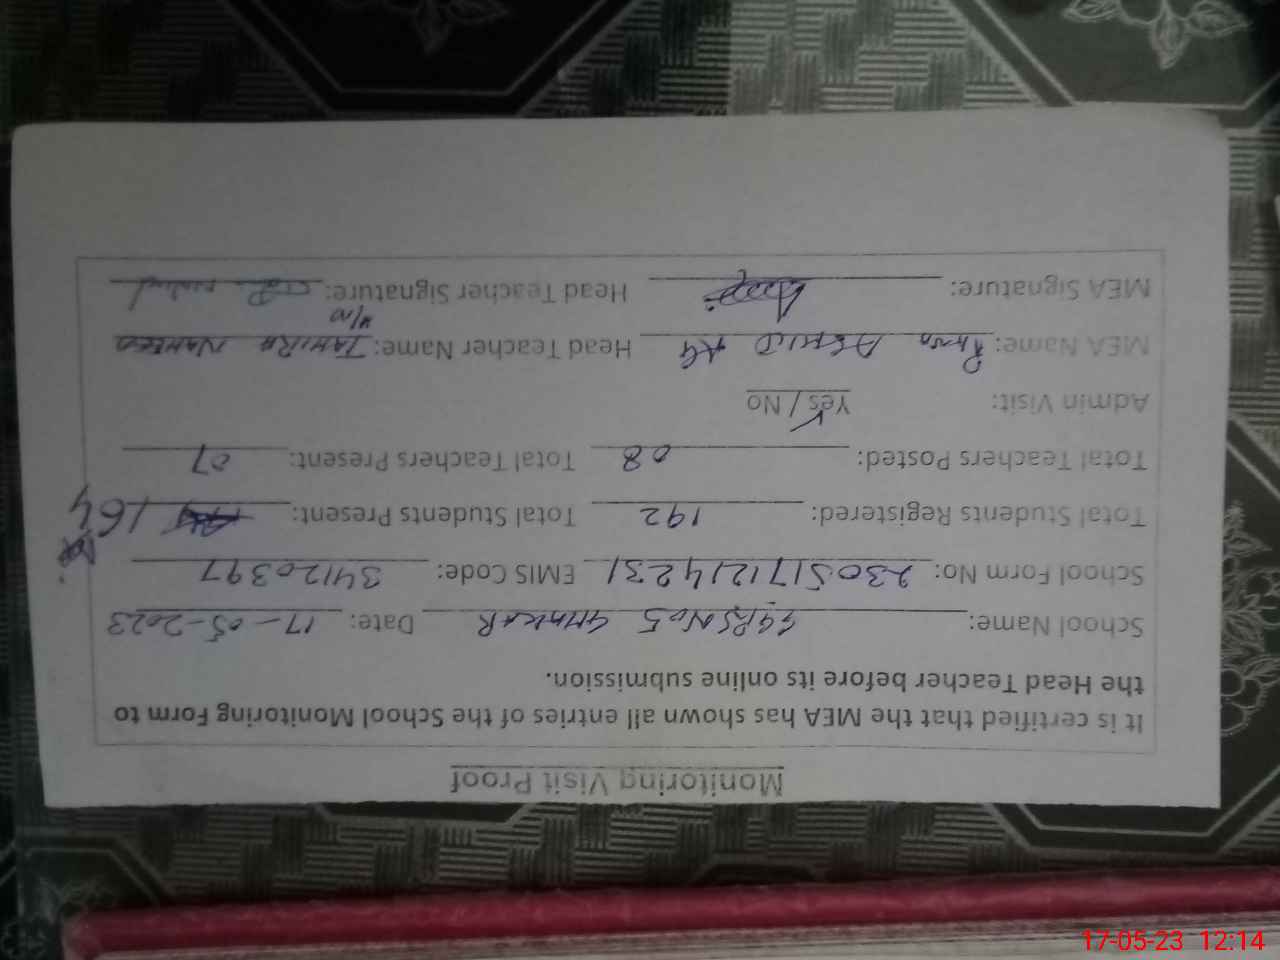 Monitoring Visit Proof
It is certified that the MEA has shown all entries of the School Monitoring Form to
the Head Teacher before its online submission.
School Name: GGPS No 5 GHAKAR Date: 17-05-2023
School Form No: 2305171214231 EMIS Code: 34120397
Total Students Registered: 192 Total Students Present: 164
Total Teachers Posted: 08 Total Teachers Present: 07
Admin Visit: Yes / No
MEA Name: Head Teacher Name: TAHIRA
MEA Signature: Head Teacher Signature:
17-05-23 12:14